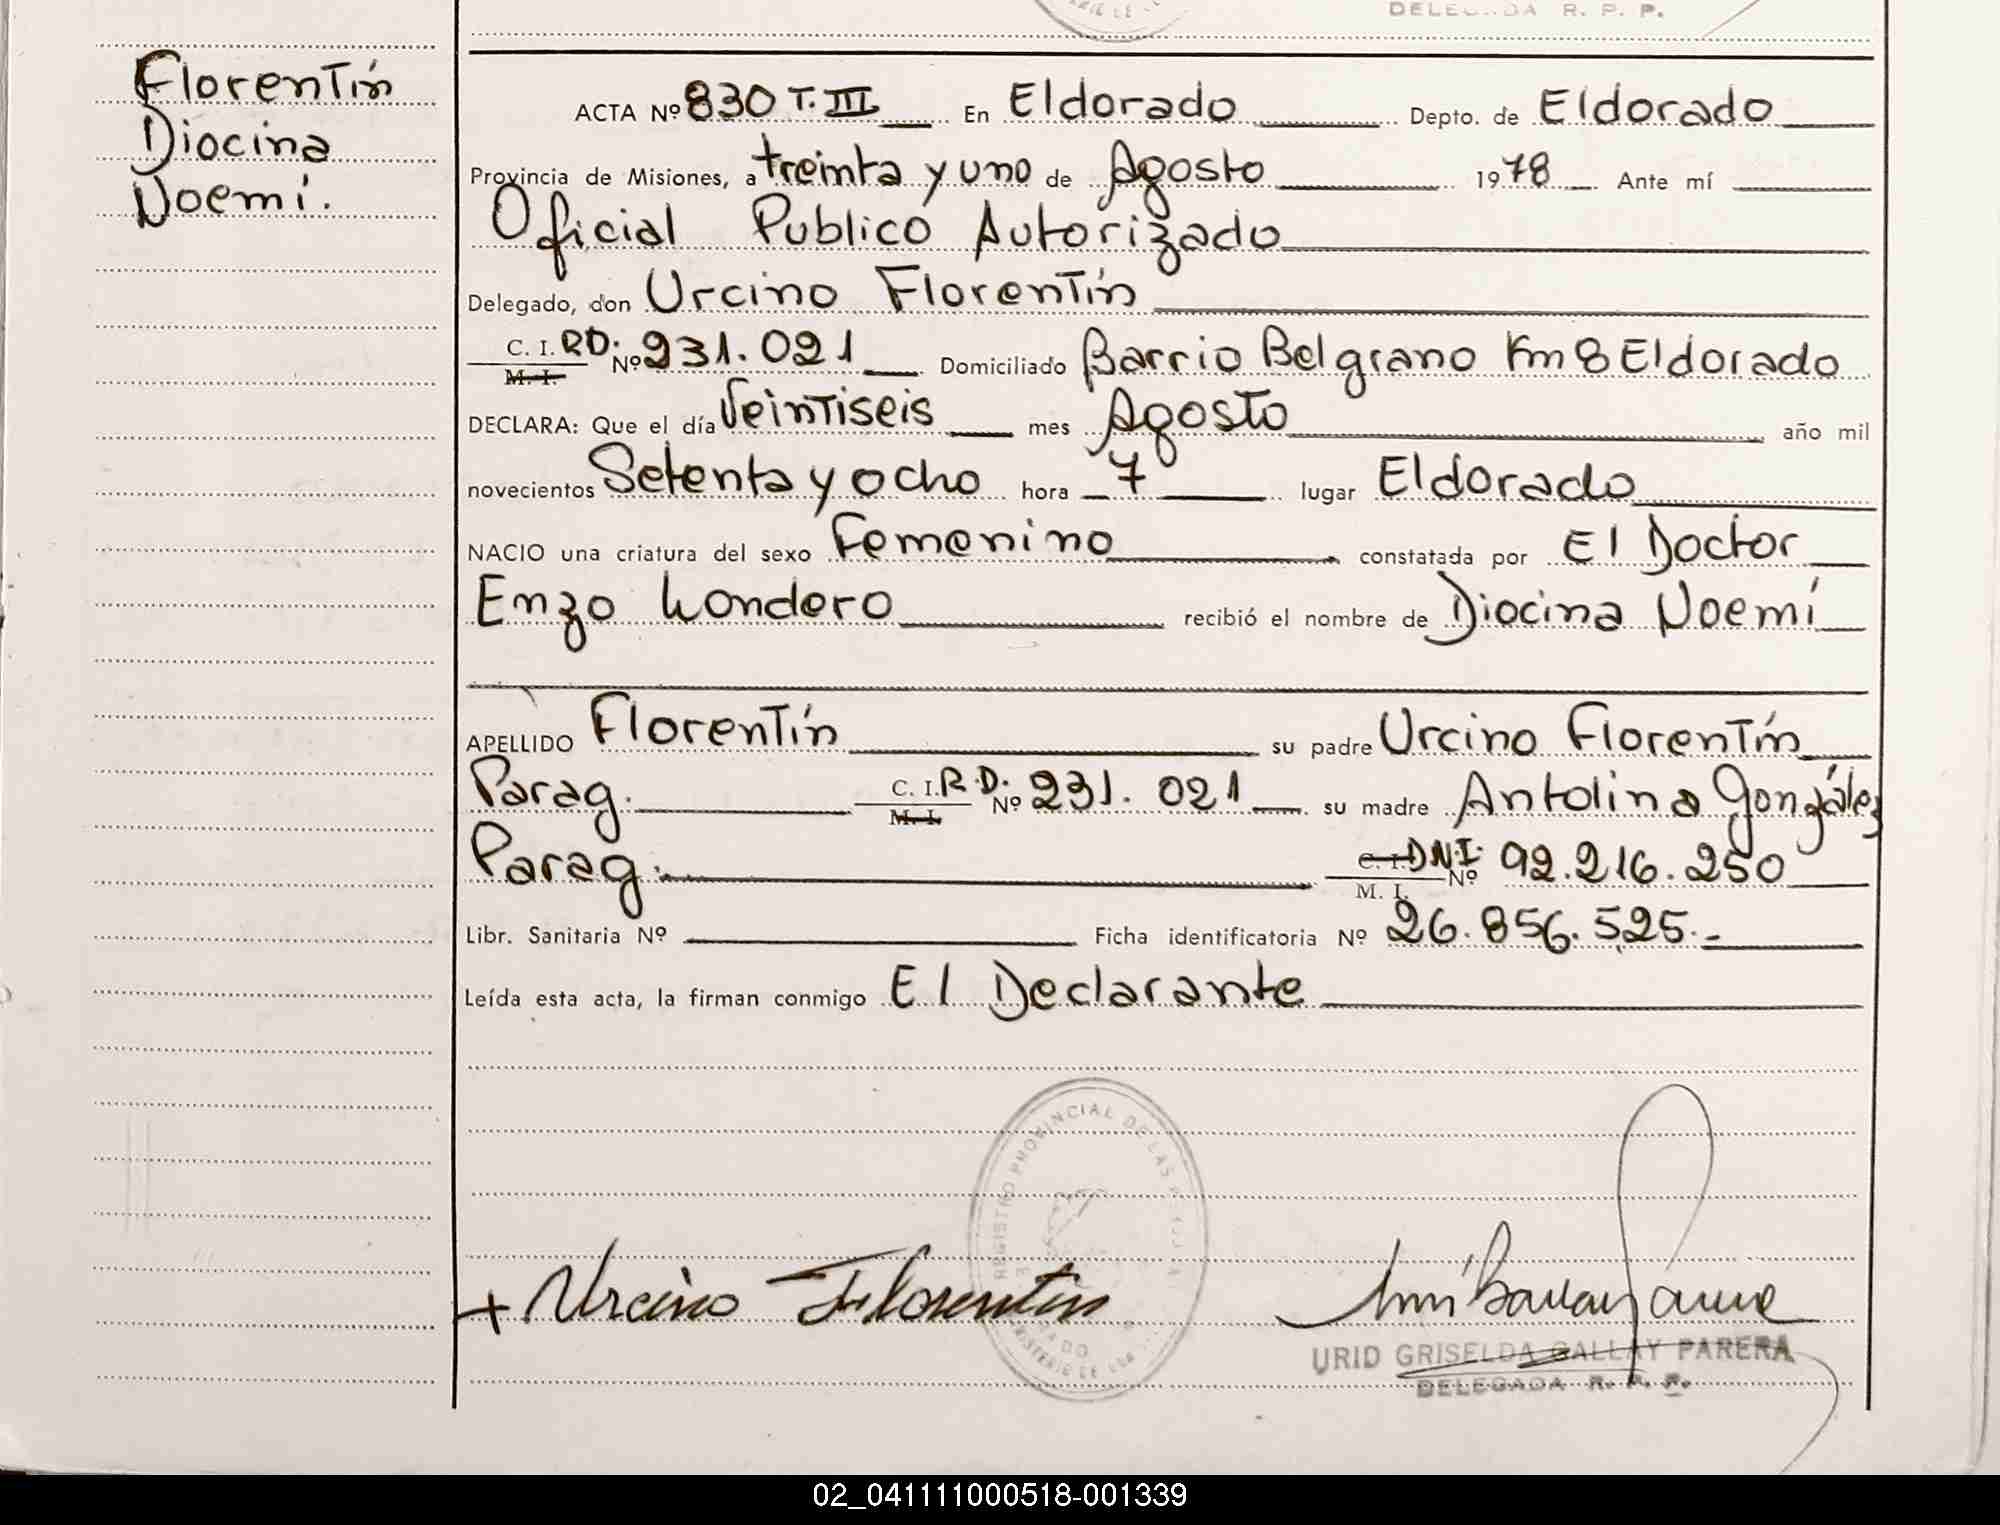 DELEGADA R. P. P.
Florentín
Diocina
Noemí.
ACTA Nº 830 T. III En Eldorado Depto. de Eldorado
Provincia de Misiones, a treinta y uno de Agosto 1978 Ante mí
Oficial Publico Autorizado
Delegado, don Urcino Florentín
C. I. RD. Nº 231.021 Domiciliado Barrio Belgrano Km 8 Eldorado
M. I.
DECLARA: Que el día Veintiseis mes Agosto año mil
novecientos Setenta y ocho hora 7 lugar Eldorado
NACIO una criatura del sexo Femenino constatada por El Doctor
Enzo Londero recibió el nombre de Diocina Noemí
APELLIDO Florentín su padre Urcino Florentín
Parag. C. I. R.D. Nº 231.021 su madre Antolina González
M. I.
Parag. C. I. D.N.I. Nº 92.216.250
M. I.
Libr. Sanitaria Nº Ficha identificatoria Nº 26.856.525.-
Leída esta acta, la firman conmigo El Declarante
REGISTRO PROVINCIAL DE LAS
+ Urcino Florentín
URID GRISELDA GALLAY PARERA
DELEGADA R. P. P.
02_041111000518-001339